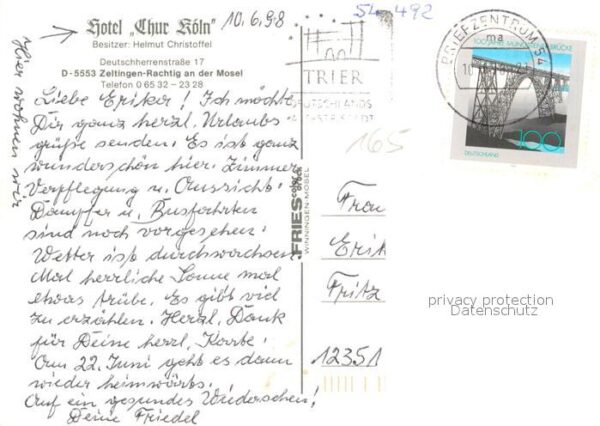 Hotel „Chur Köln"
Besitzer: Helmut Christoffel
Deutschherrenstraße 17
D-5553 Zeltingen-Rachtig an der Mosel
Telefon 0 65 32 – 23 28
10.6.98
Hier wohnen wir
Liebe Erika! Ich möchte
Dir ganz herzl. Urlaubs
grüße senden. Es ist ganz
wunderschön hier. Zimmer
Verpflegung u. Aussicht.
Dampfer u. Busfahrten
sind noch vorgesehen!
Wetter ist durchwachsen
Mal herrliche Sonne mal
etwas trübe. Es gibt viel
zu erzählen. Herzl. Dank
für Deine herzl. Karte!
Am 22. Juni geht es dann
wieder heimwärts.
Auf ein gesundes Wiedersehen!
Deine Friedel
FRIES
WINNINGEN-MOSEL
54 492
TRIER
DEUTSCHLANDS
165
BRIEFZENTRUM 54
ma
BRÜCKE
100
DEUTSCHLAND
Frau
Erik
Fritz
privacy protection
Datenschutz
12351